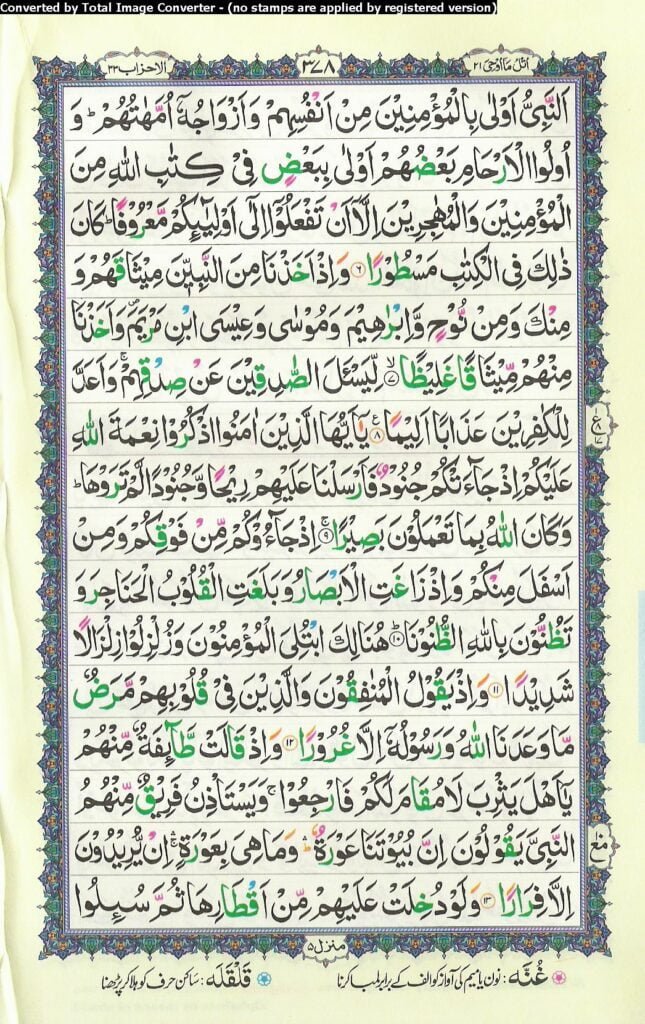 Converted by Total Image Converter - (no stamps are applied by registered version)
اتل ما اوحی ۲۱
۳۷۸
الاحزاب ۳۳
اَلنَّبِیُّ اَوْلٰی بِالْمُؤْمِنِیْنَ مِنْ اَنْفُسِهِمْ وَ اَزْوَاجُهٗۤ اُمَّهٰتُهُمْ ؕ وَ
اُولُوا الْاَرْحَامِ بَعْضُهُمْ اَوْلٰی بِبَعْضٍ فِیْ كِتٰبِ اللّٰهِ مِنَ
الْمُؤْمِنِیْنَ وَ الْمُهٰجِرِیْنَ اِلَّاۤ اَنْ تَفْعَلُوْۤا اِلٰۤی اَوْلِیٰٓىِٕكُمْ مَّعْرُوْفًا ؕ كَانَ
ذٰلِكَ فِی الْكِتٰبِ مَسْطُوْرًا ۶ وَ اِذْ اَخَذْنَا مِنَ النَّبِیّٖنَ مِیْثَاقَهُمْ وَ
مِنْكَ وَ مِنْ نُّوْحٍ وَّ اِبْرٰهِیْمَ وَ مُوْسٰی وَ عِیْسَی ابْنِ مَرْیَمَ ۪ وَ اَخَذْنَا
مِنْهُمْ مِّیْثَاقًا غَلِیْظًا ۷ ۙ لِّیَسْـَٔلَ الصّٰدِقِیْنَ عَنْ صِدْقِهِمْ ۚ وَ اَعَدَّ
لِلْكٰفِرِیْنَ عَذَابًا اَلِیْمًا ۸ ۧ یٰۤاَیُّهَا الَّذِیْنَ اٰمَنُوا اذْكُرُوْا نِعْمَةَ اللّٰهِ
عَلَیْكُمْ اِذْ جَآءَتْكُمْ جُنُوْدٌ فَاَرْسَلْنَا عَلَیْهِمْ رِیْحًا وَّ جُنُوْدًا لَّمْ تَرَوْهَا ؕ
وَ كَانَ اللّٰهُ بِمَا تَعْمَلُوْنَ بَصِیْرًا ۹ ۚ اِذْ جَآءُوْكُمْ مِّنْ فَوْقِكُمْ وَ مِنْ
اَسْفَلَ مِنْكُمْ وَ اِذْ زَاغَتِ الْاَبْصَارُ وَ بَلَغَتِ الْقُلُوْبُ الْحَنَاجِرَ وَ
تَظُنُّوْنَ بِاللّٰهِ الظُّنُوْنَا ۱۰ ؕ هُنَالِكَ ابْتُلِیَ الْمُؤْمِنُوْنَ وَ زُلْزِلُوْا زِلْزَالًا
شَدِیْدًا ۱۱ وَ اِذْ یَقُوْلُ الْمُنٰفِقُوْنَ وَ الَّذِیْنَ فِیْ قُلُوْبِهِمْ مَّرَضٌ
مَّا وَعَدَنَا اللّٰهُ وَ رَسُوْلُهٗۤ اِلَّا غُرُوْرًا ۱۲ وَ اِذْ قَالَتْ طَّآىِٕفَةٌ مِّنْهُمْ
یٰۤاَهْلَ یَثْرِبَ لَا مُقَامَ لَكُمْ فَارْجِعُوْا ۚ وَ یَسْتَاْذِنُ فَرِیْقٌ مِّنْهُمُ
النَّبِیَّ یَقُوْلُوْنَ اِنَّ بُیُوْتَنَا عَوْرَةٌ ۛؕ وَ مَا هِیَ بِعَوْرَةٍ ۛۚ اِنْ یُّرِیْدُوْنَ
اِلَّا فِرَارًا ۱۳ وَ لَوْ دُخِلَتْ عَلَیْهِمْ مِّنْ اَقْطَارِهَا ثُمَّ سُىِٕلُوا
منزل ۵
غُنَّه : نون یا میم کی آواز کو الف کے برابر لمبا کرنا
قَلْقَلَه : ساکن حرف کو ہلا کر پڑھنا